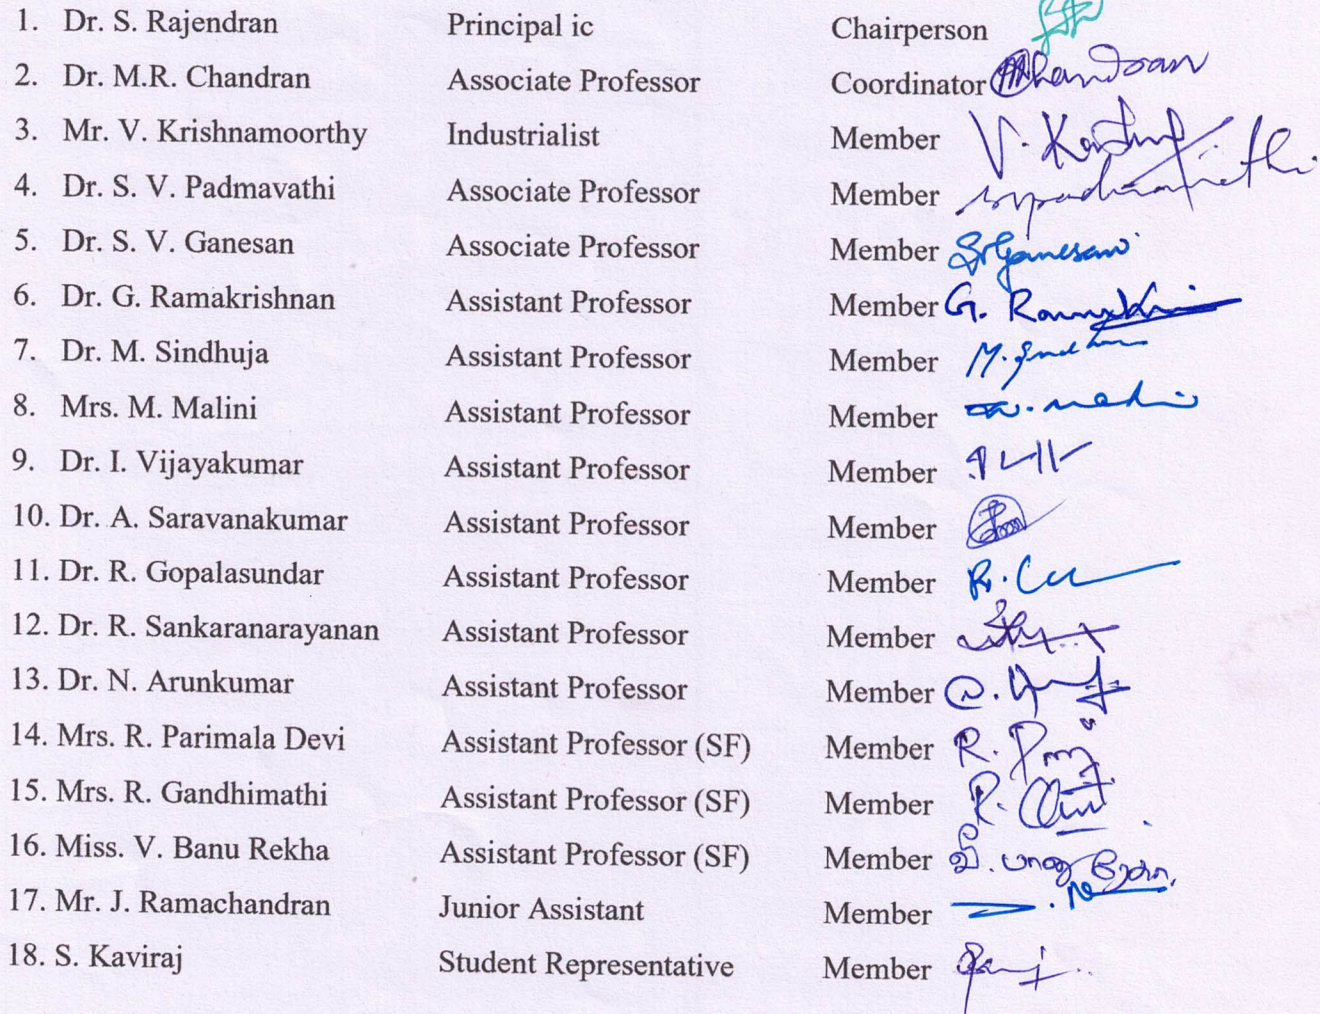 1. Dr. S. Rajendran Principal ic Chairperson
2. Dr. M.R. Chandran Associate Professor Coordinator Mchandran
3. Mr. V. Krishnamoorthy Industrialist Member
4. Dr. S. V. Padmavathi Associate Professor Member svpadmavathi
5. Dr. S. V. Ganesan Associate Professor Member SvGanesan
6. Dr. G. Ramakrishnan Assistant Professor Member
7. Dr. M. Sindhuja Assistant Professor Member
8. Mrs. M. Malini Assistant Professor Member
9. Dr. I. Vijayakumar Assistant Professor Member
10. Dr. A. Saravanakumar Assistant Professor Member
11. Dr. R. Gopalasundar Assistant Professor Member
12. Dr. R. Sankaranarayanan Assistant Professor Member
13. Dr. N. Arunkumar Assistant Professor Member
14. Mrs. R. Parimala Devi Assistant Professor (SF) Member
15. Mrs. R. Gandhimathi Assistant Professor (SF) Member
16. Miss. V. Banu Rekha Assistant Professor (SF) Member வீ. பானு ரேகா.
17. Mr. J. Ramachandran Junior Assistant Member
18. S. Kaviraj Student Representative Member